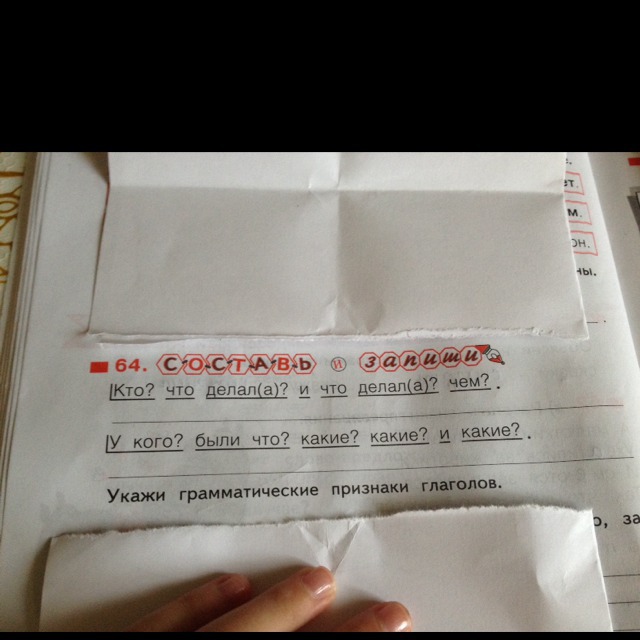 ет.
м.
он.
ны.
64. СОСТАВЬ и запиши
Кто? что делал(а)? и что делал(а)? чем? .
У кого? были что? какие? какие? и какие? .
Укажи грамматические признаки глаголов.
о, за